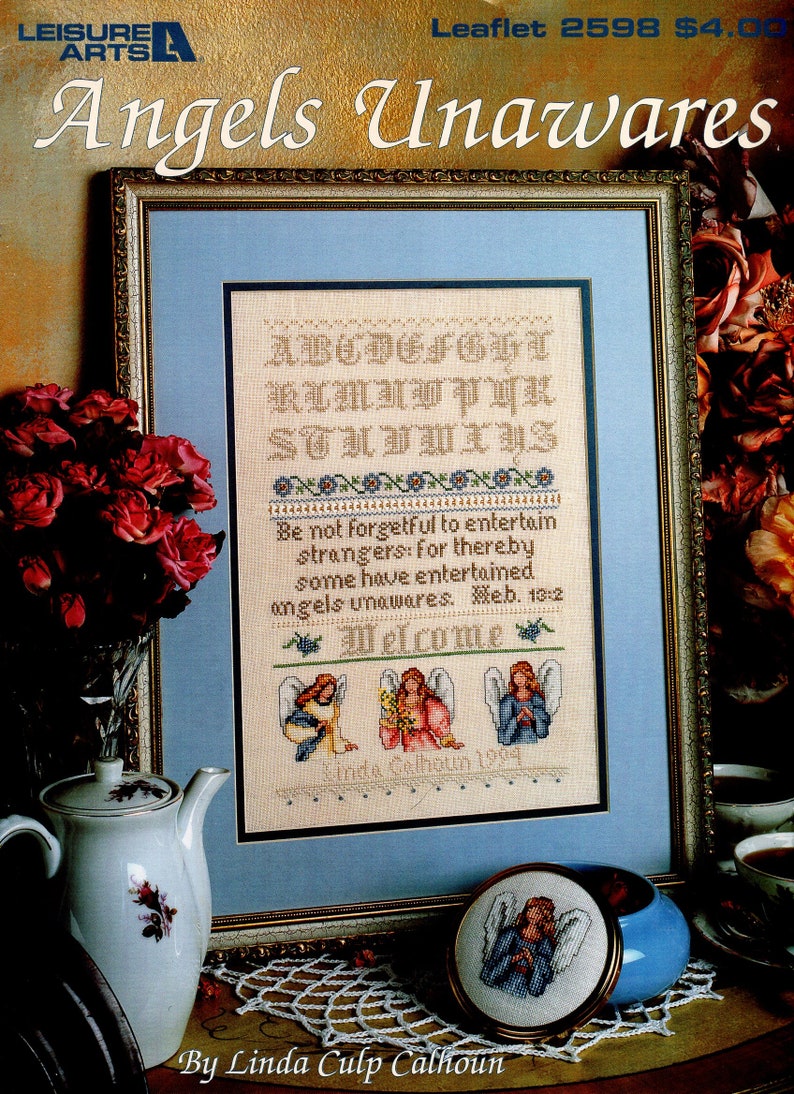 LEISURE ARTS
Leaflet 2598 $4.00
Angels Unawares
ABCDEFGHI
KLMNOPQR
STUVWXYZ
Be not forgetful to entertain
strangers: for thereby
some have entertained
angels unawares. Heb. 13:2
Welcome
Linda Calhoun 1994
By Linda Culp Calhoun